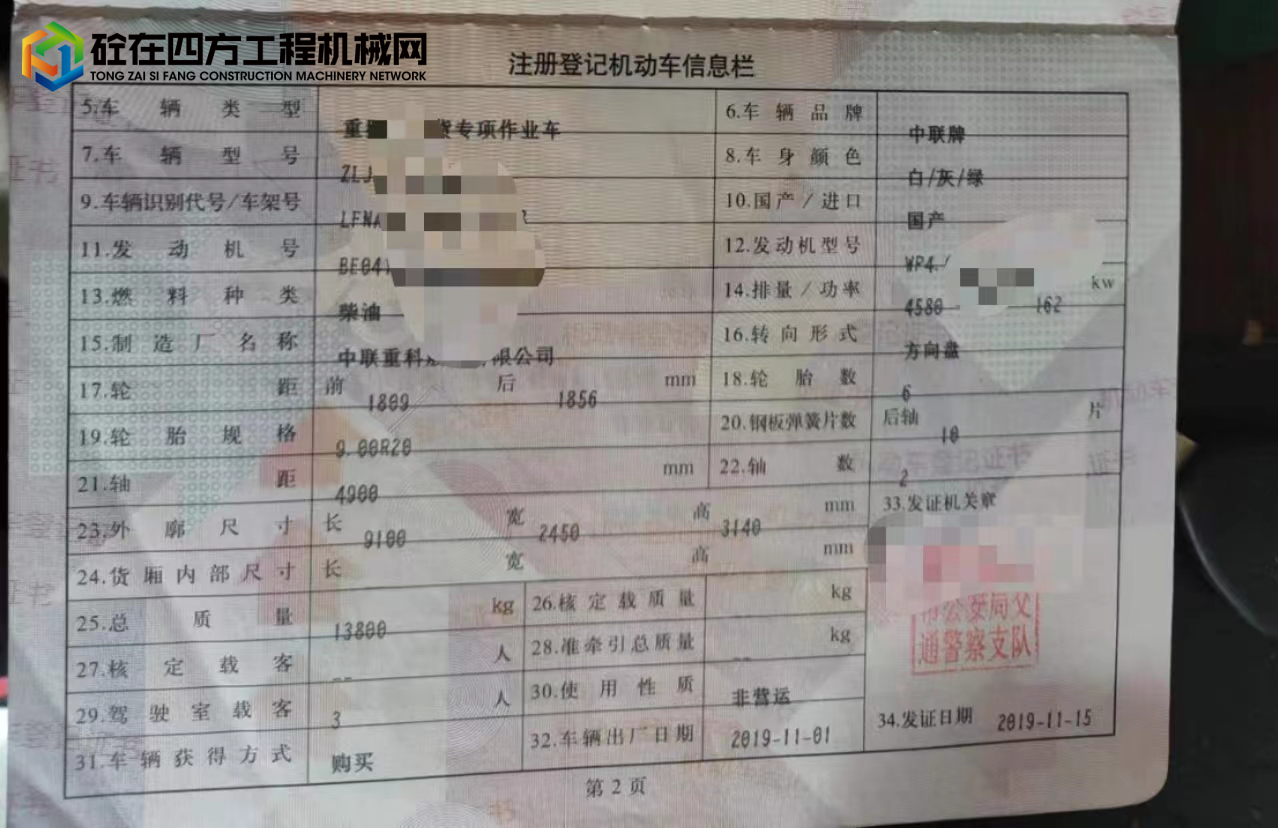 砼在四方工程机械网
TONG ZAI SI FANG CONSTRUCTION MACHINERY NETWORK
注册登记机动车信息栏
5.车辆类型 重 货专项作业车 6.车辆品牌 中联牌
7.车辆型号 ZLJ 8.车身颜色 白/灰/绿
9.车辆识别代号/车架号 LFNA 10.国产/进口 国产
11.发动机号 BE04 12.发动机型号 WP4.
13.燃料种类 柴油 14.排量/功率 4580 162 kw
15.制造厂名称 中联重科 限公司 16.转向形式 方向盘
17.轮距 前 1809 后 1856 mm 18.轮胎数 6
19.轮胎规格 9.00R20 20.钢板弹簧片数 后轴 10 片
21.轴距 4900 mm 22.轴数 2
23.外廓尺寸 长 9100 宽 2450 高 3140 mm 33.发证机关章
24.货厢内部尺寸 长 宽 高 mm
25.总质量 13800 kg 26.核定载质量 kg
27.核定载客 -- 人 28.准牵引总质量 -- kg
市公安局交
通警察支队
29.驾驶室载客 3 人 30.使用性质 非营运
31.车辆获得方式 购买 32.车辆出厂日期 2019-11-01 34.发证日期 2019-11-15
第2页